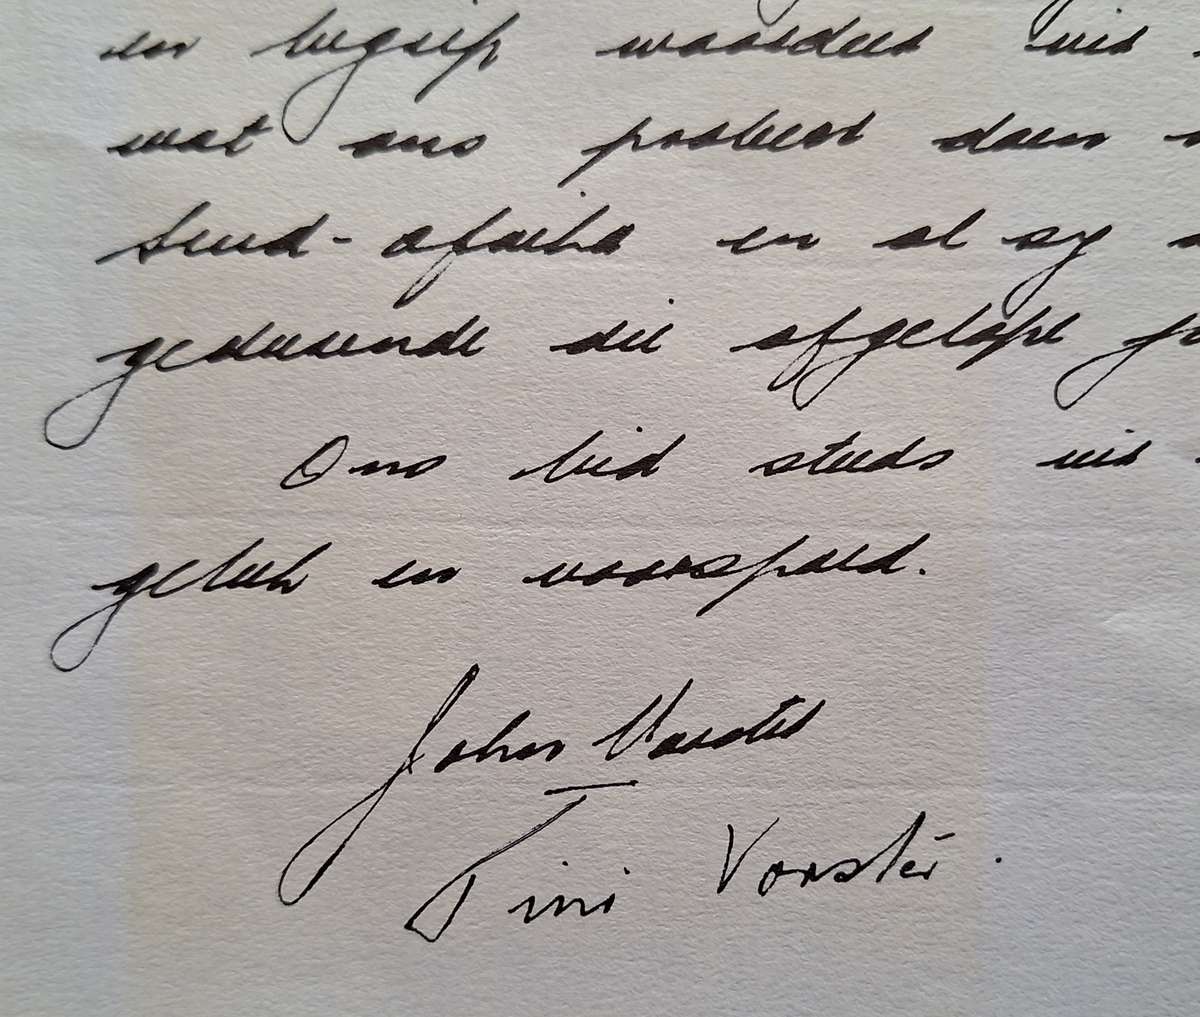 en begrip waardeer vir
wat ons probeer doen
Suid-Afrika en al sy
gedurende die afgelope
Ons bid steeds vir
geluk en voorspoed.
John Vorster
Tini Vorster.